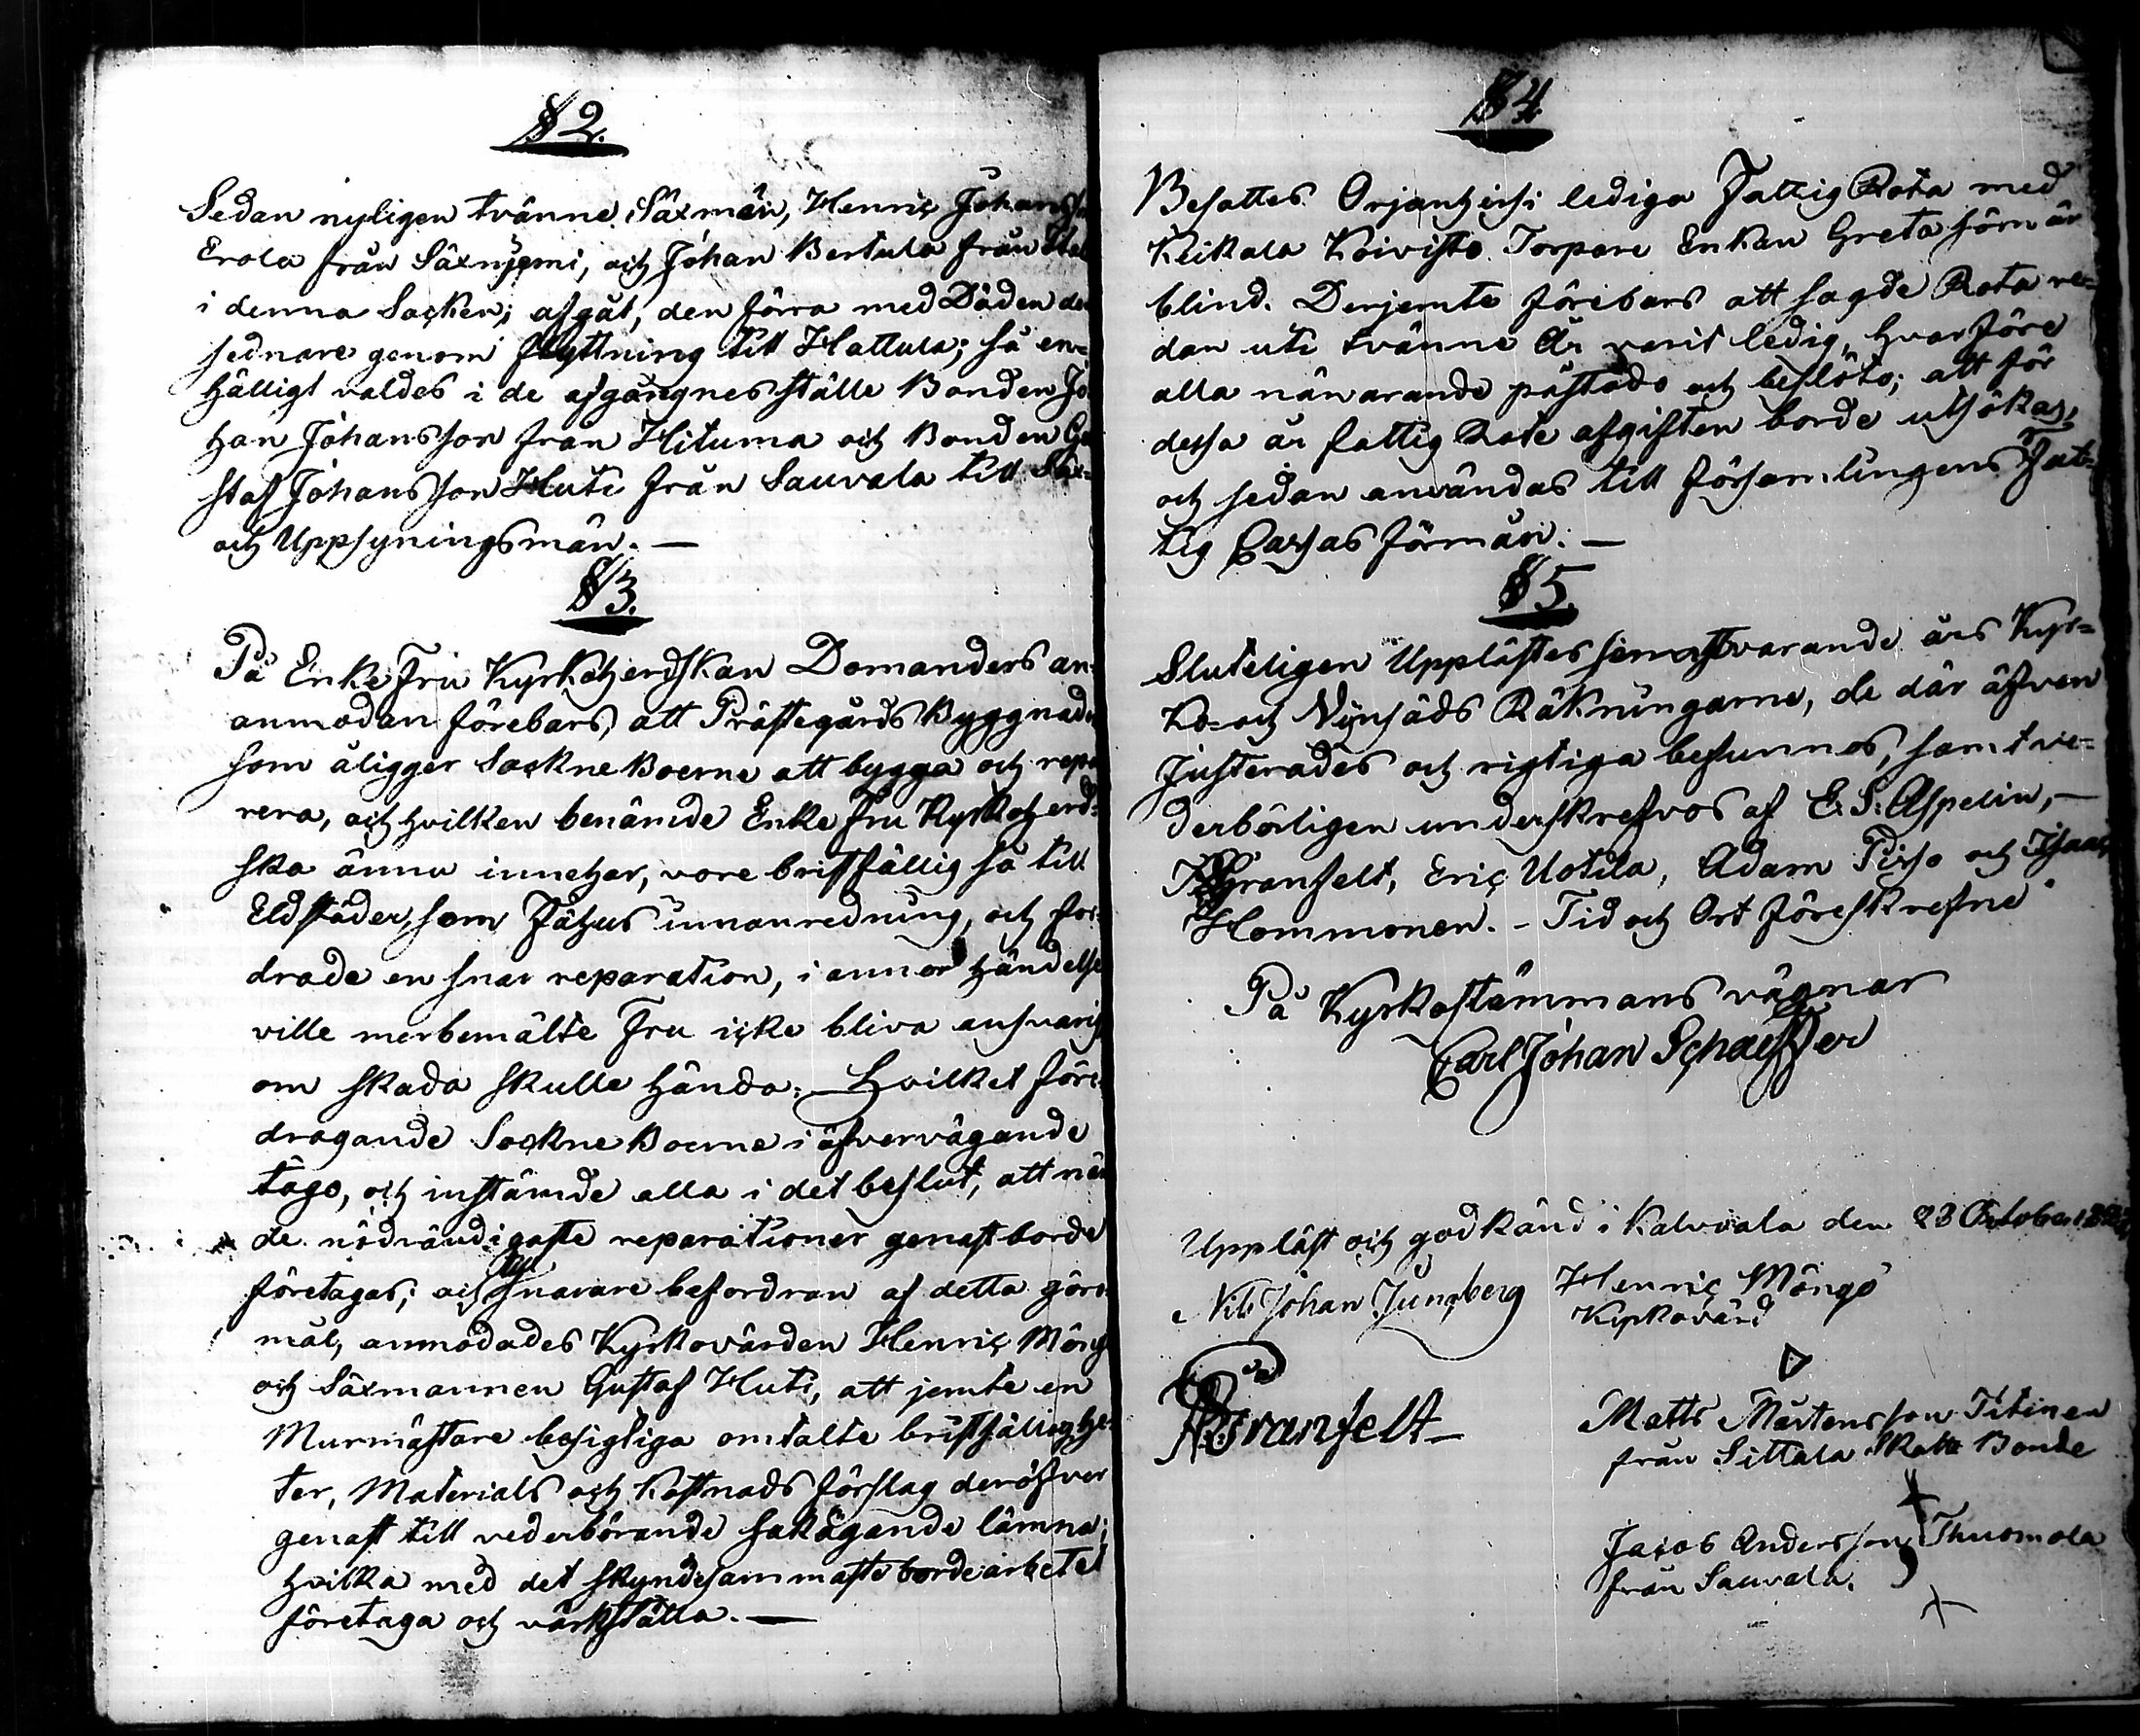 § 2.
Sedan nyligen tvänne Säxmän, Henric Johansson
Erola från Säxnjemi, och Johan Bertula från
i denna Socken; afgåt, den förra med Döden den
sednare genom flyttning till Hattula; så en-
hälligt valdes i de afgångnes ställe Bonden Jo
han Johansson från Hituma och Bonden Gu
staf Johansson Huti från Sauvala till Säx-
och Uppsyningsmän. —
§ 3.
På Enke Fru Kyrkoherdskan Domanders an-
anmodan förebars, att Prästegårds Byggnaden
som åligger Sockne Boerne att bygga och repa
rera, och hvilken benämde Enke Fru Kyrkoherd-
ska ännu innehar, vore bristfällig så till
Eldstäder, som Fähus innanredning, och for-
drade en snar reparation, i annor händelse
ville merbemälte Fru icke bliva ansvarig
om skada skulle hända; Hvilket före-
dragande Sockne Boerne i öfvervägande
togo, och instämde alla i det beslut, att
de nödvändigaste reparationer genast borde
företagas; och till snarare befordran af detta göro-
mål, anmodades Kyrkovärden Henric Möngö
och Säxmannen Gustaf Huti, att jemte en
Murmästare besigtiga omtalte bristfällighe-
ter, Materials och Kostnads förslag deröfver
genast till vederbörande sakägande lämna;
hvilka med det skyndesammaste borde arbetet
företaga och värkställa. —
§ 4
Besattes Orjanhirsi lediga Fattig Rota med
Keikala Koivisto Torpare Enkan Greta som är
blind. Derjemte förebars att sagde Rota re-
dan uti tvänne År varit ledig, hvarföre
alla närvarande påstodo och beslöto; att för
dessa år fattig Rote afgiften borde utsökas,
och sedan användas till församlingens Fat-
tig Cassas förmån. —
§ 5.
Sluteligen Upplästes senastvarande års Kyr-
ko- och Vinsäds Räkningarne, de där äfven
Justerades och rigtiga befunnos, samt ve-
derbörligen underskrefvos af E. S. Aspelin, —
Granfelt, Eric Uotila, Adam Pirso och Isaac
Hommonen. - Tid och Ort föreskrefne
På Kyrkostämmans vägnar
Carl Johan Schaeffer
Uppläst och godkänd i Kalvvala den 23 October
Nils Johan Jungberg Henric Möngö
Kyrkovärd
Granfelt
Matts Mårtensson Titinen
från Sittala Skatte Bonde
Jacob Andersson Thuomola
från Sauvala.